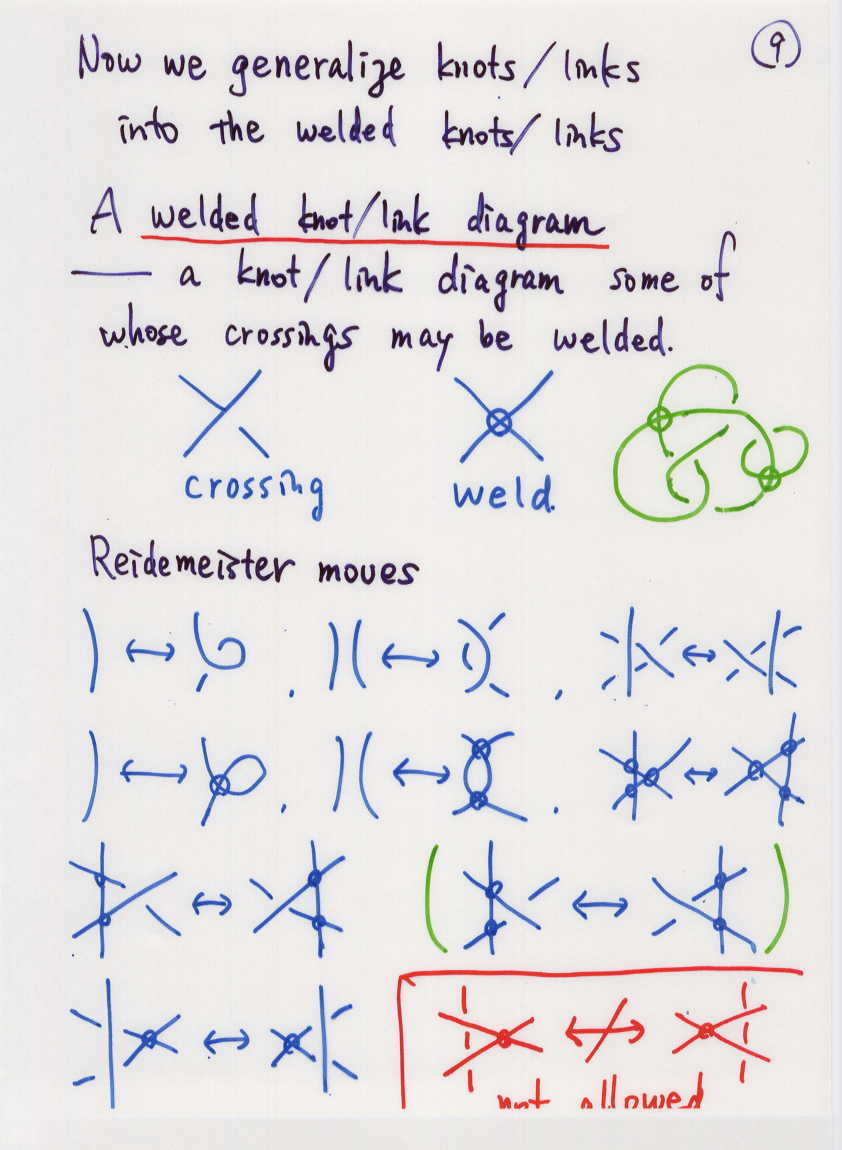 9
Now we generalize knots/links
into the welded knots/links
A welded knot/link diagram
— a knot/link diagram some of
whose crossings may be welded.
crossing weld.
Reidemeister moves
not allowed